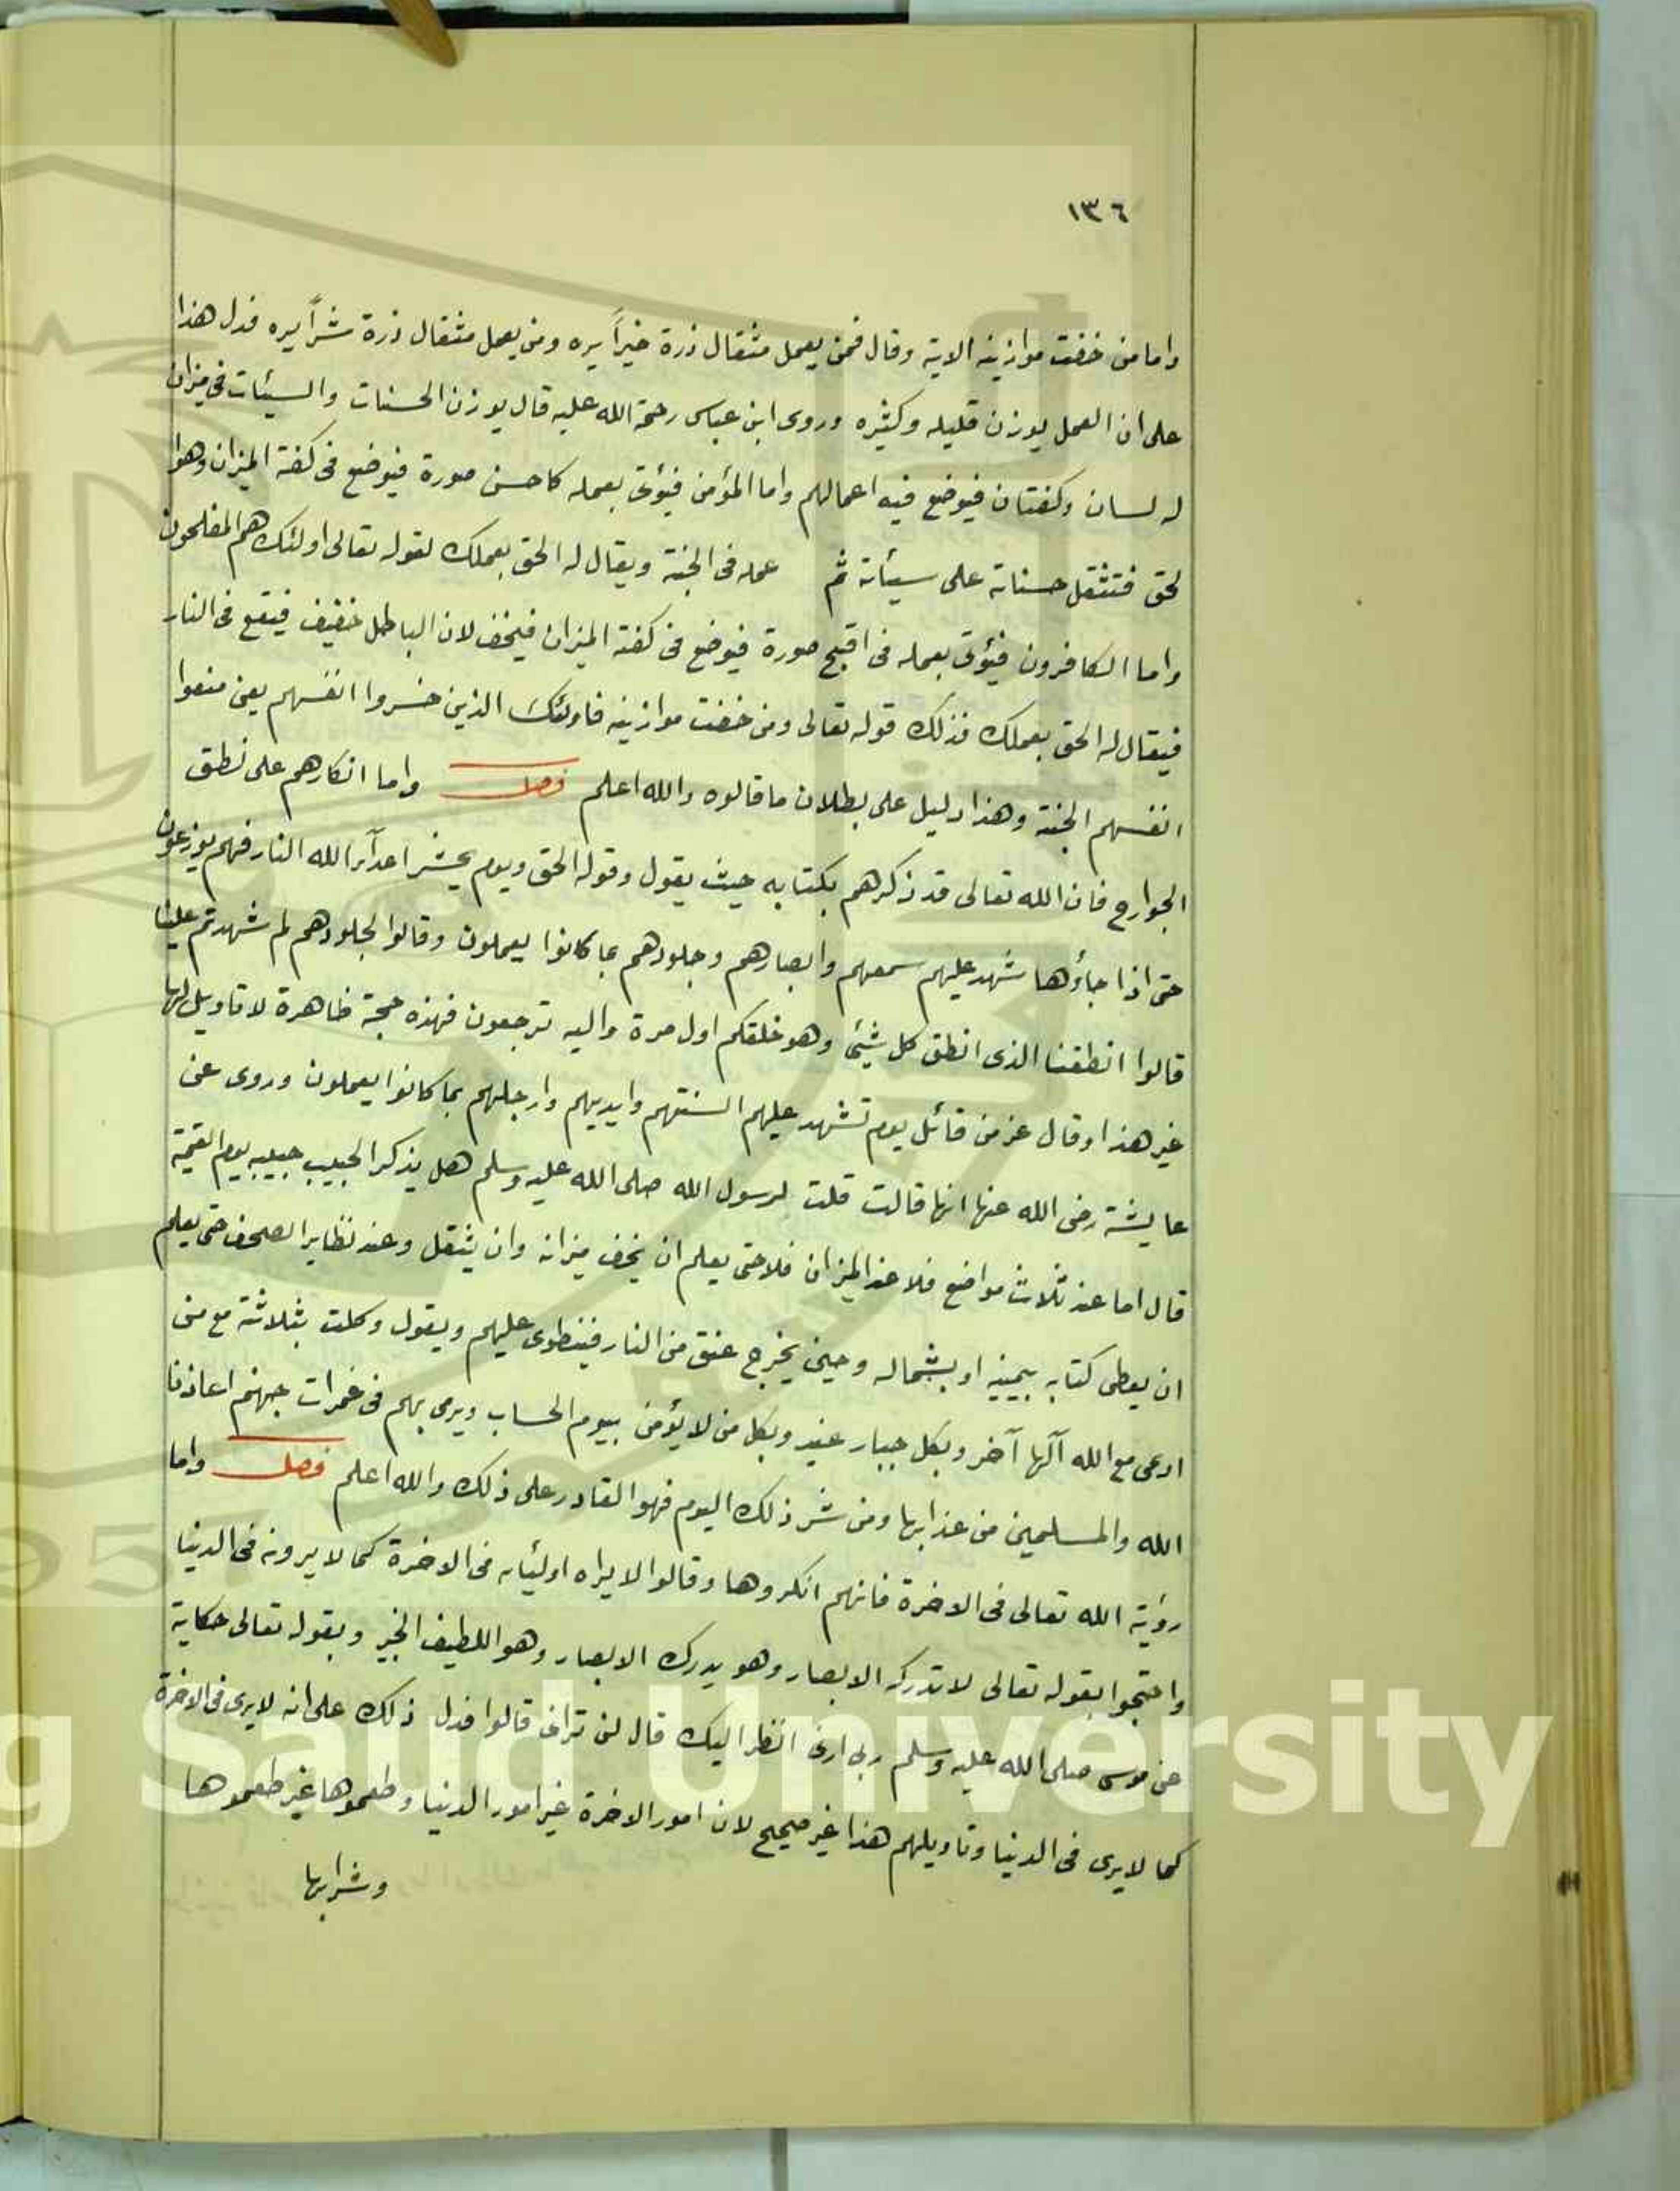 ١٣٦
واما من خفت موازينه الاية وقال فمن يعمل مثقال ذرة خيراً يره ومن يعمل مثقال ذرة شراً يره فدل هذا
على ان العمل يوزن قليله وكثيره وروى ابن عباس رحمة الله عليه قال يوزن الحسنات والسيئات في ميزان
له لسان وكفتان فيوضع فيه اعمالهم واما المؤمن فيؤتى بعمله كاحسن صورة فيوضع في كفة الميزان وهوا
لحق فتثقل حسناته على سيئاته ثم عمله في الجنة ويقال له الحق بعملك لقوله تعالى اولئك هم المفلحون
واما الكافرون فيؤتى بعمله في اقبح صورة فيوضع في كفة الميزان فيخف لان الباطل خفيف فيقع في النار
فيقال له الحق بعملك فذلك قوله تعالى ومن خفت موازينه فاولئك الذين خسروا انفسهم يعني منعوا
انفسهم الجنة وهذا دليل على بطلان ما قالوه والله اعلم فصل واما انكارهم على نطق
الجوارح فان الله تعالى قد ذكرهم بكتابه حيث يقول وقوله الحق ويوم يحشر اعدآء الله النار فهم يوزعون
حتى اذا جاؤها شهد عليهم سمعهم وابصارهم وجلودهم بما كانوا يعملون وقالوا لجلودهم لم شهدتم علينا
قالوا انطقنا الذى انطق كل شيئ وهو خلقكم اول مرة واليه ترجعون فهذه حجة ظاهرة لا تاويل لها
غير هذا وقال عز من قائل يوم تشهد عليهم السنتهم وايديهم وارجلهم بما كانوا يعملون وروى عن
عايشة رضى الله عنها انها قالت قلت لرسول الله صلى الله عليه وسلم هل يذكر الحبيب حبيبه يوم القيمة
قال اما عند ثلاث مواضع فلا عند الميزان فلا حتى يعلم ان يخف ميزانه وان يثقل وعند تطاير الصحف حتى يعلم
ان يعطى كتابه بيمينه او بشماله وحين يخرج عنق من النار فينطوى عليهم ويقول وكلت بثلاثة مع من
ادعى مع الله آلها آخر وبكل جبار عنيد وبكل من لا يؤمن بيوم الحساب ويرمى بهم في غمرات جهنم اعاذنا
الله والمسلمين من عذابها ومن شر ذلك اليوم فهو القادر على ذلك والله اعلم فصل واما
رؤية الله تعالى في الاخرة فانهم انكروها وقالوا لا يراه اولئاه في الاخرة كما لا يرونه في الدنيا
واحتجوا بقوله تعالى لا تدركه الابصار وهو يدرك الابصار وهو اللطيف الخبير وبقوله تعالى حكاية
عن موسى صلى الله عليه وسلم ربى ارنى انظر اليك قال لن ترانى قالوا فدل ذلك على انه لا يرى في الاخرة
كما لا يرى في الدنيا وتاويلهم هذا غير صحيح لان امور الاخرة غير امور الدنيا وطعموها غير طعموها
وشرابها
g Saud University
95